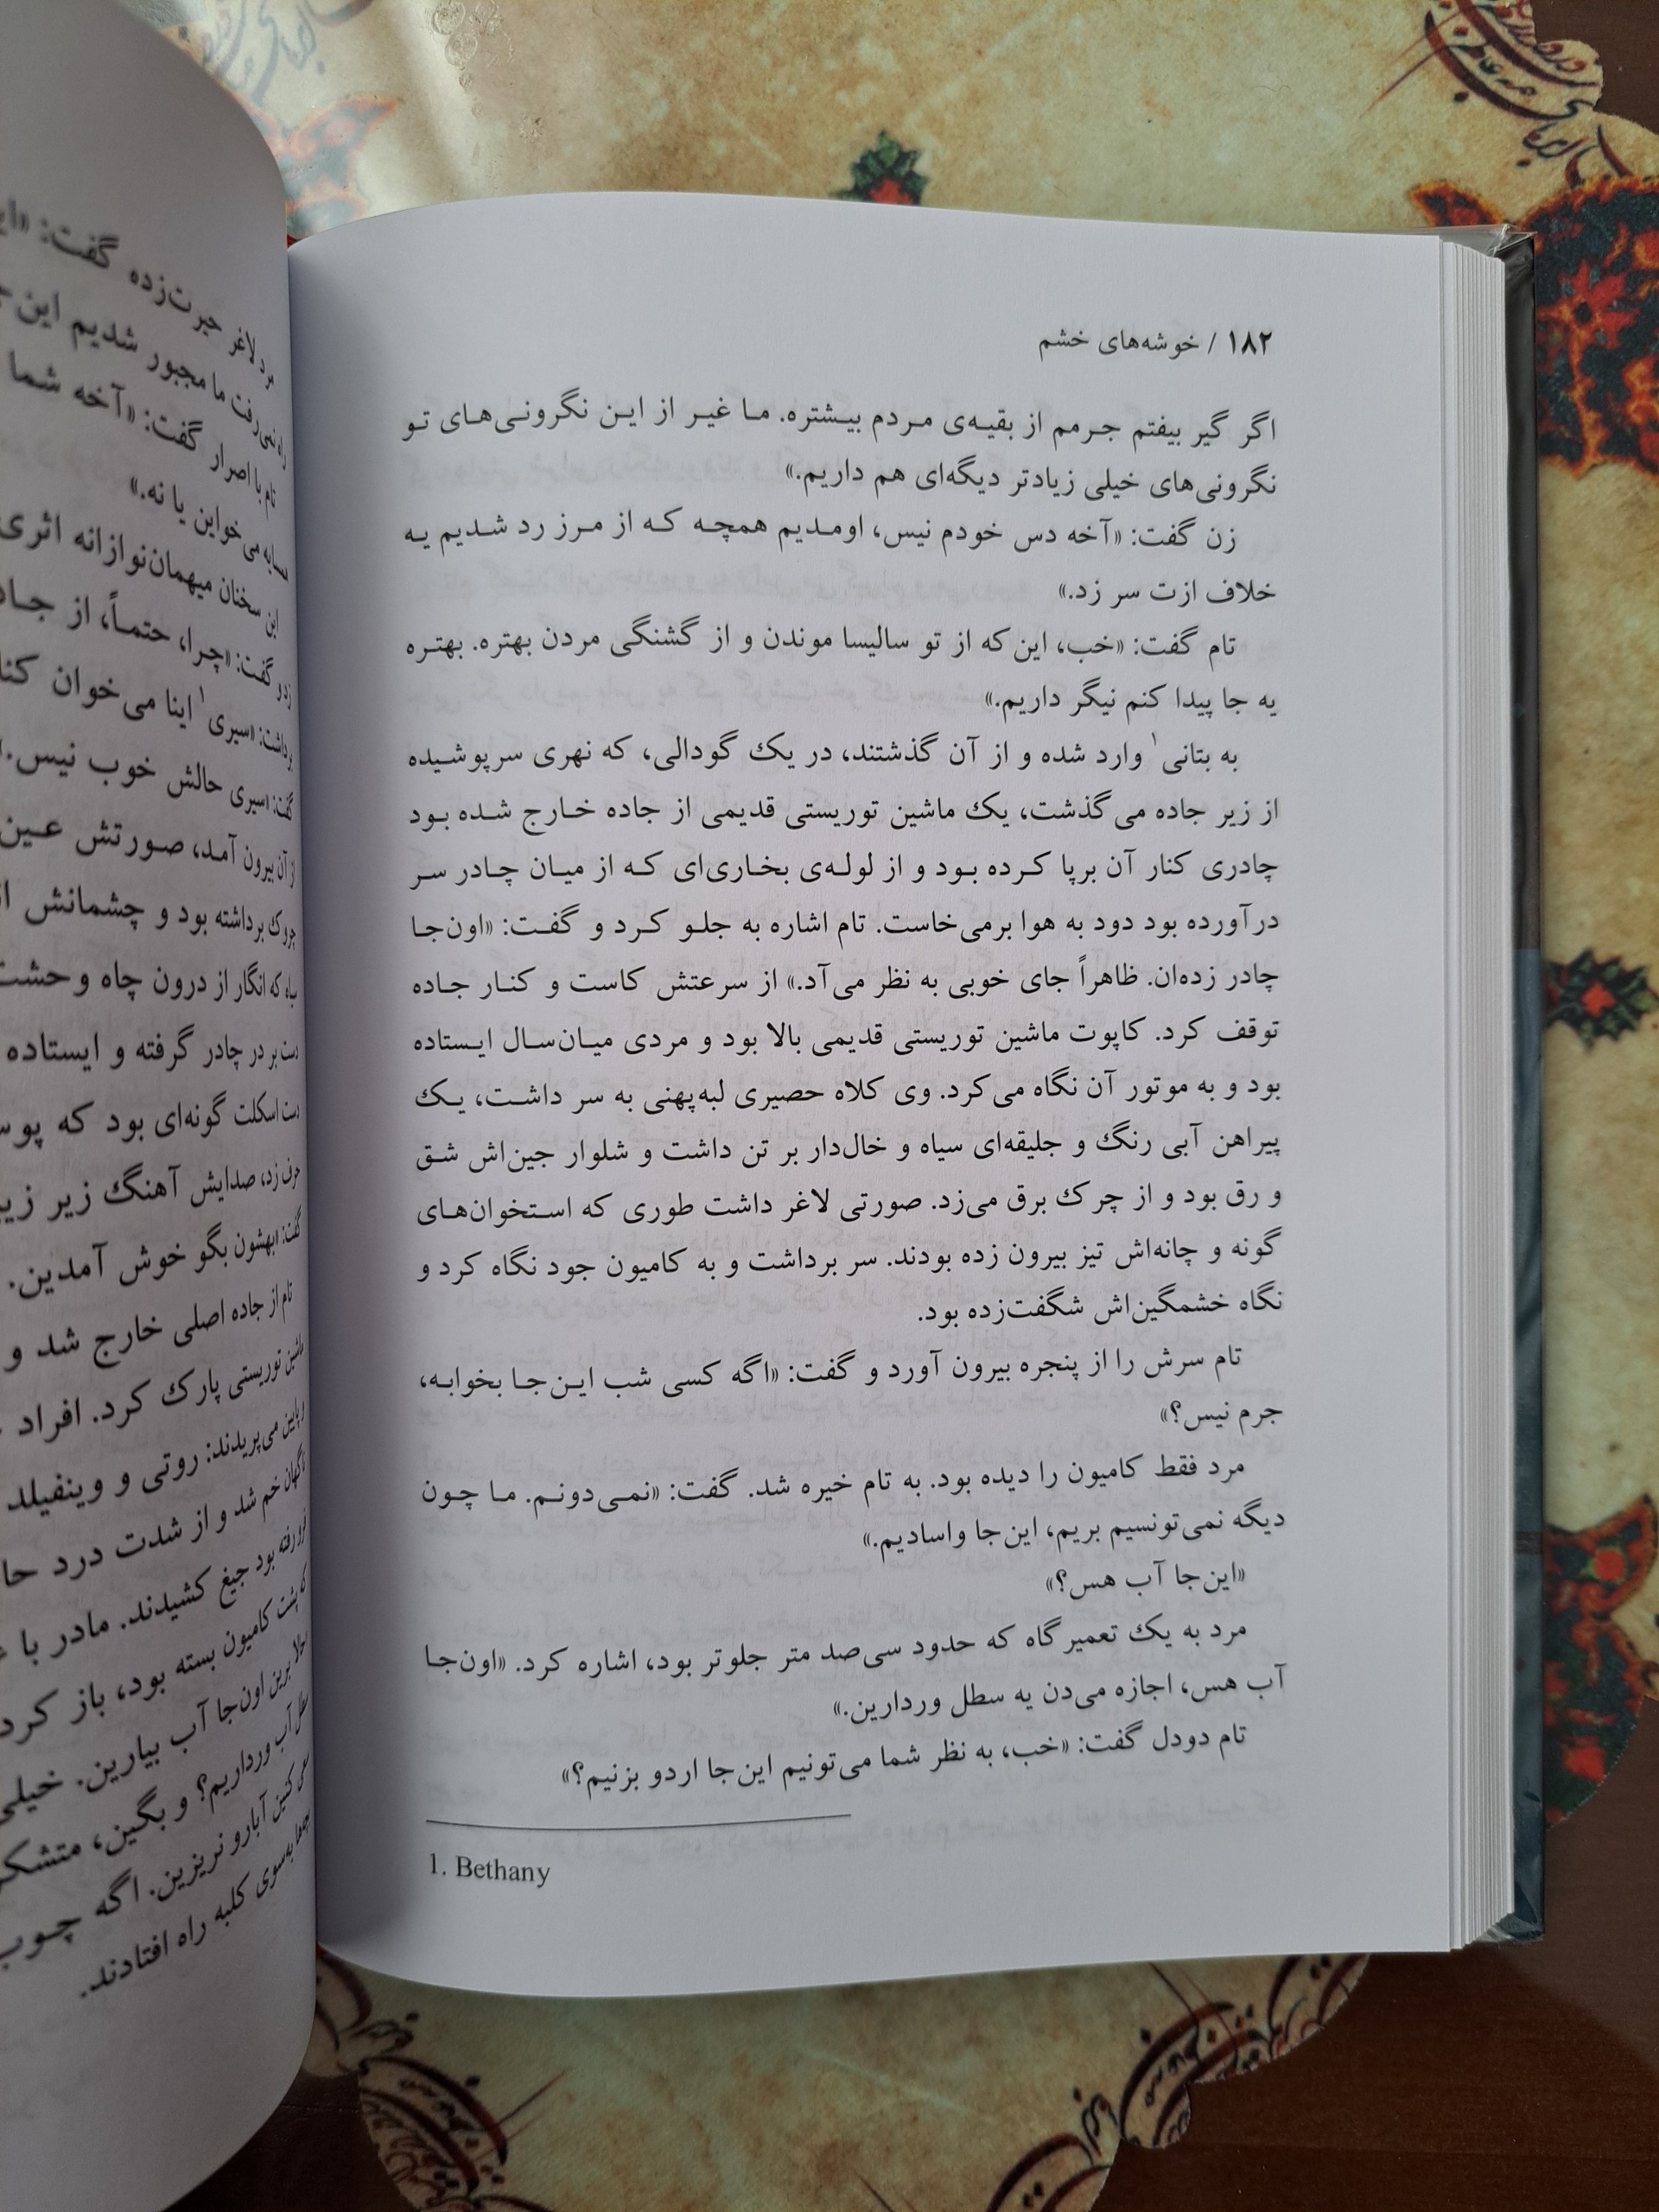 ۱۸۲ / خوشه‌های خشم
اگر گیر بیفتم جرمم از بقیه‌ی مردم بیشتره. ما غیر از این نگرونی‌های تو
نگرونی‌های خیلی زیادتر دیگه‌ای هم داریم.»
زن گفت: «آخه دس خودم نیس، اومدیم همچه که از مرز رد شدیم یه
خلاف ازت سر زد.»
تام گفت: «خب، این که از تو سالیسا موندن و از گشنگی مردن بهتره. بهتره
یه جا پیدا کنم نیگر داریم.»
به بتانی۱ وارد شده و از آن گذشتند، در یک گودالی، که نهری سرپوشیده
از زیر جاده می‌گذشت، یک ماشین توریستی قدیمی از جاده خارج شده بود
چادری کنار آن برپا کرده بود و از لوله‌ی بخاری‌ای که از میان چادر سر
درآورده بود دود به هوا برمی‌خاست. تام اشاره به جلو کرد و گفت: «اون‌جا
چادر زده‌ان. ظاهراً جای خوبی به نظر می‌آد.» از سرعتش کاست و کنار جاده
توقف کرد. کاپوت ماشین توریستی قدیمی بالا بود و مردی میان‌سال ایستاده
بود و به موتور آن نگاه می‌کرد. وی کلاه حصیری لبه‌پهنی به سر داشت، یک
پیراهن آبی رنگ و جلیقه‌ای سیاه و خال‌دار بر تن داشت و شلوار جین‌اش شق
و رق بود و از چرک برق می‌زد. صورتی لاغر داشت طوری که استخوان‌های
گونه و چانه‌اش تیز بیرون زده بودند. سر برداشت و به کامیون جود نگاه کرد و
نگاه خشمگین‌اش شگفت‌زده بود.
تام سرش را از پنجره بیرون آورد و گفت: «اگه کسی شب این‌جا بخوابه،
جرم نیس؟»
مرد فقط کامیون را دیده بود. به تام خیره شد. گفت: «نمی‌دونم. ما چون
دیگه نمی‌تونسیم بریم، این‌جا واسادیم.»
«این‌جا آب هس؟»
مرد به یک تعمیرگاه که حدود سی‌صد متر جلوتر بود، اشاره کرد. «اون‌جا
آب هس، اجازه می‌دن یه سطل وردارین.»
تام دودل گفت: «خب، به نظر شما می‌تونیم این‌جا اردو بزنیم؟»
1. Bethany
مرد لاغر حیرت‌زده گفت:
راه نمی‌رفت ما مجبور شدیم این
تام با اصرار گفت: «آخه شما
می‌خواین یا نه.»
این سخنان میهمان‌نوازانه اثری
گفت: «چرا، حتماً، از
برداشت: «سیری۱ اینا می‌خوان
گفت: «سیری حالش خوب نیس.
از آن بیرون آمد، صورتش عین
چروک برداشته بود و چشمانش
سیاه که انگار از درون چاه وحشت
دست بر در چادر گرفته و ایستاده
دست اسکلت گونه‌ای بود که
حرف زد، صدایش آهنگ زیر
گفت: «بهشون بگو خوش آمدین.
تام از جاده اصلی خارج شد و
ماشین توریستی پارک کرد. افراد
پایین می‌پریدند: روتی و وینفیلد
ناگهان خم شد و از شدت درد
فرو رفته بود جیغ کشیدند. مادر با
که پشت کامیون بسته بود، باز کرد
برین اون‌جا آب بیارین. خیلی
آب ورداریم؟ و بگین، متشکر
سعی کنین آبارو نریزین. اگه چوب
به‌سوی کلبه راه افتادند.